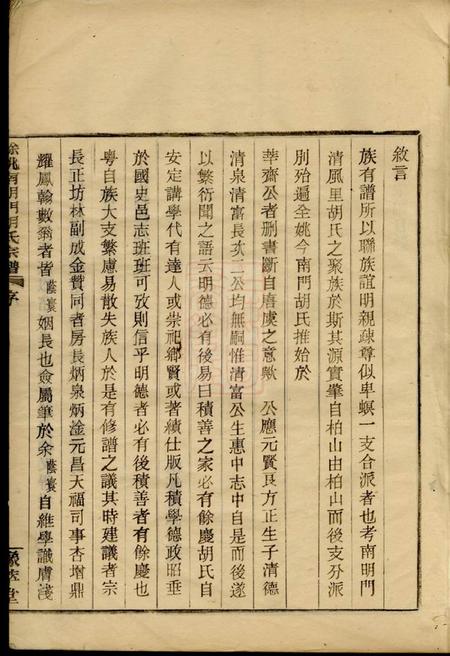 敘言
族有譜所以聯族誼明親疎尊似卑螟一支合派者也考南明門
清風里胡氏之聚族於斯其源實肇自柏山由柏山而後支分派
別殆遍全姚今南門胡氏推始於
華齋公者刪書斷自唐虞之意歟　公應元賢良方正生子清德
清泉清富長次二公均無嗣惟清富公生惠中志中自是而後遂
以繁衍聞之語云明德必有後易曰積善之家必有餘慶胡氏自
安定講學代有達人或崇祀鄉賢或著績仕版凡積學德政昭垂
於國史邑志班班可攷則信乎明德者必有後積善者有餘慶也
粵自族大支繁慮易散失族人於是有修譜之議其時建議者宗
長正坊林副成金贊同者房長炳泉炳淦元昌天福司事杏增鼎
耀鳳翰數翁者皆蔭寰姻長也僉屬筆於余蔭寰自維學識膚淺
餘姚南明門胡氏宗譜
序